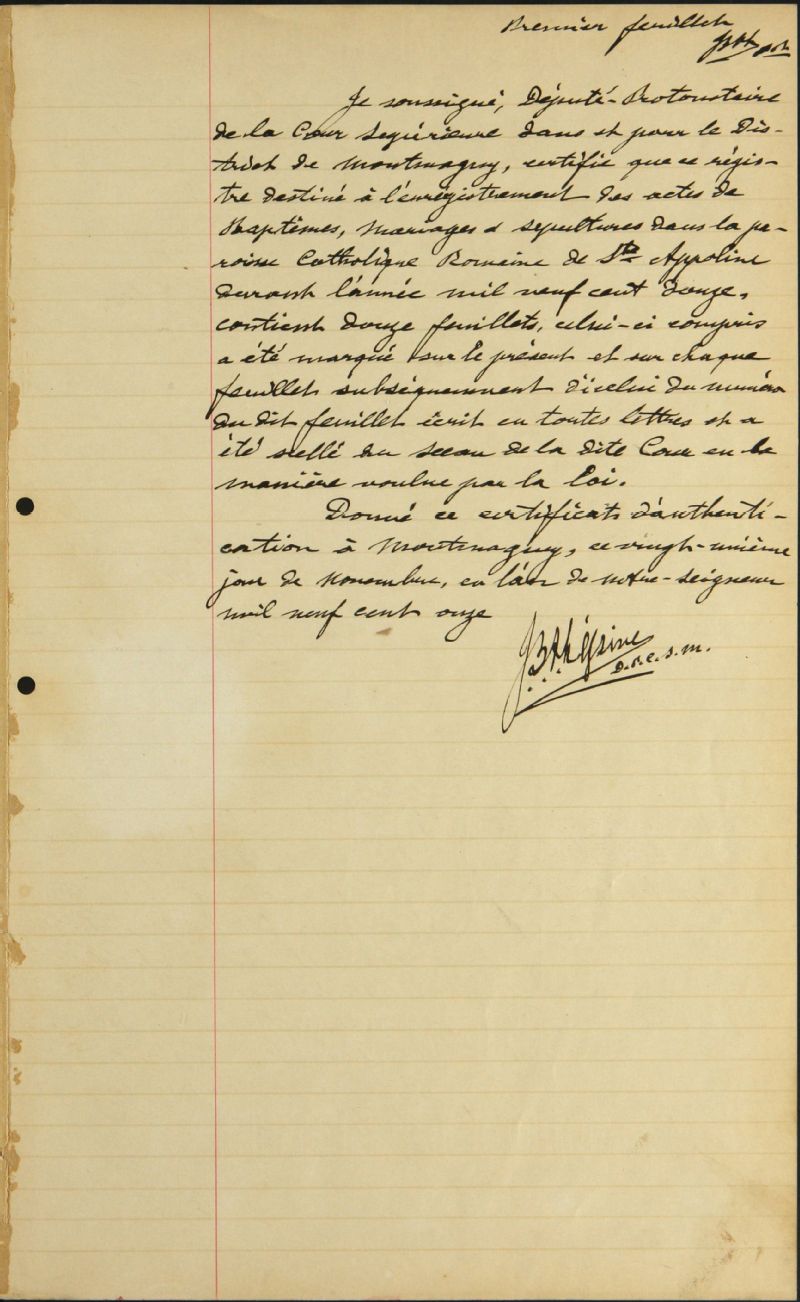 Premier feuillet
Je soussigné, Député-Protonotaire
de la Cour Supérieure dans et pour le Dis-
trict de Montmagny, certifie que ce régis-
tre destiné à l'enrégistrement des actes de
Baptêmes, Mariages & sepultures dans la pa-
roisse Catholique Romaine de Ste Appoline
durant l'année mil neuf cent douze,
contient douze feuillets, celui-ci compris
a été marqué sur le présent et sur chaque
feuillet subséquemment d'icelui du numéro
du dit feuillet écrit en toutes lettres et a
été scellé du sceau de la dite Cour en la
manière voulue par la loi.
Donné ce certificat d'authenti-
cation à Montmagny, ce vingt-unième
jour de Novembre, en l'an de notre-seigneur
mil neuf cent onze
D.P.C.S.M.